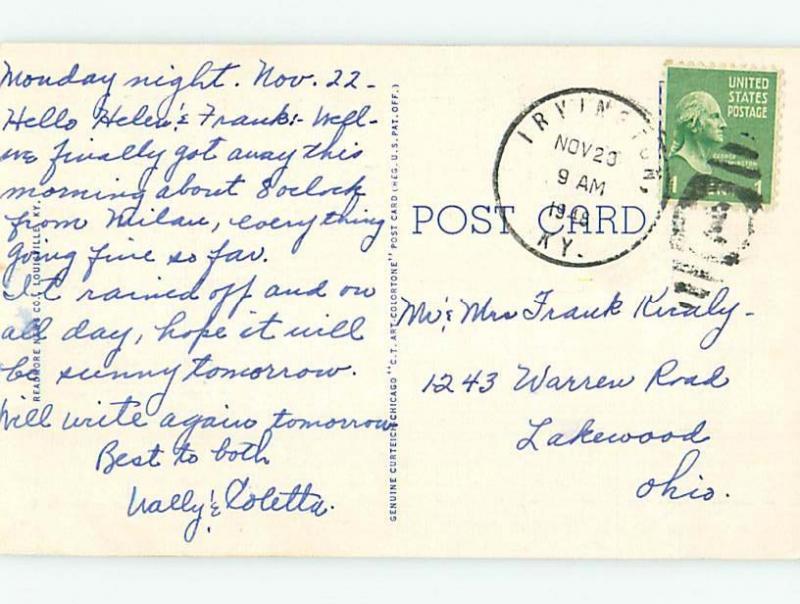 Monday night. Nov. 22-
Hello Helen & Frank:- Well-
we finally got away this
morning about 8 oclock
from Milan, everything
going fine so far.
It rained off and on
all day, hope it will
be sunny tomorrow.
Will write again tomorrow
Best to both
Wally & Coletta.
READMORE CO., LOUISVILLE, KY.
GENUINE CURTEICH-CHICAGO "C.T. ART-COLORTONE" POST CARD (REG. U.S. PAT. OFF.)
POST CARD
IRVINGTON,
NOV 23
9 AM
1948
KY.
UNITED
STATES
POSTAGE
GEORGE
1 1
Mr & Mrs Frank Kiraly-
1243 Warren Road
Lakewood
Ohio.